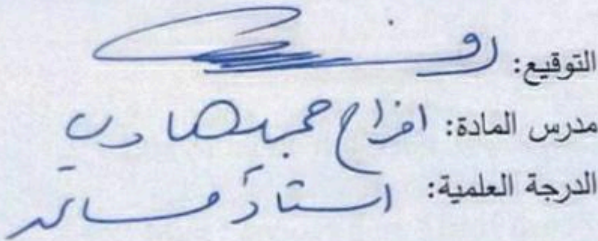 التوقيع:
مدرس المادة: افراح حميد هادي
الدرجة العلمية: استاذ مساعد